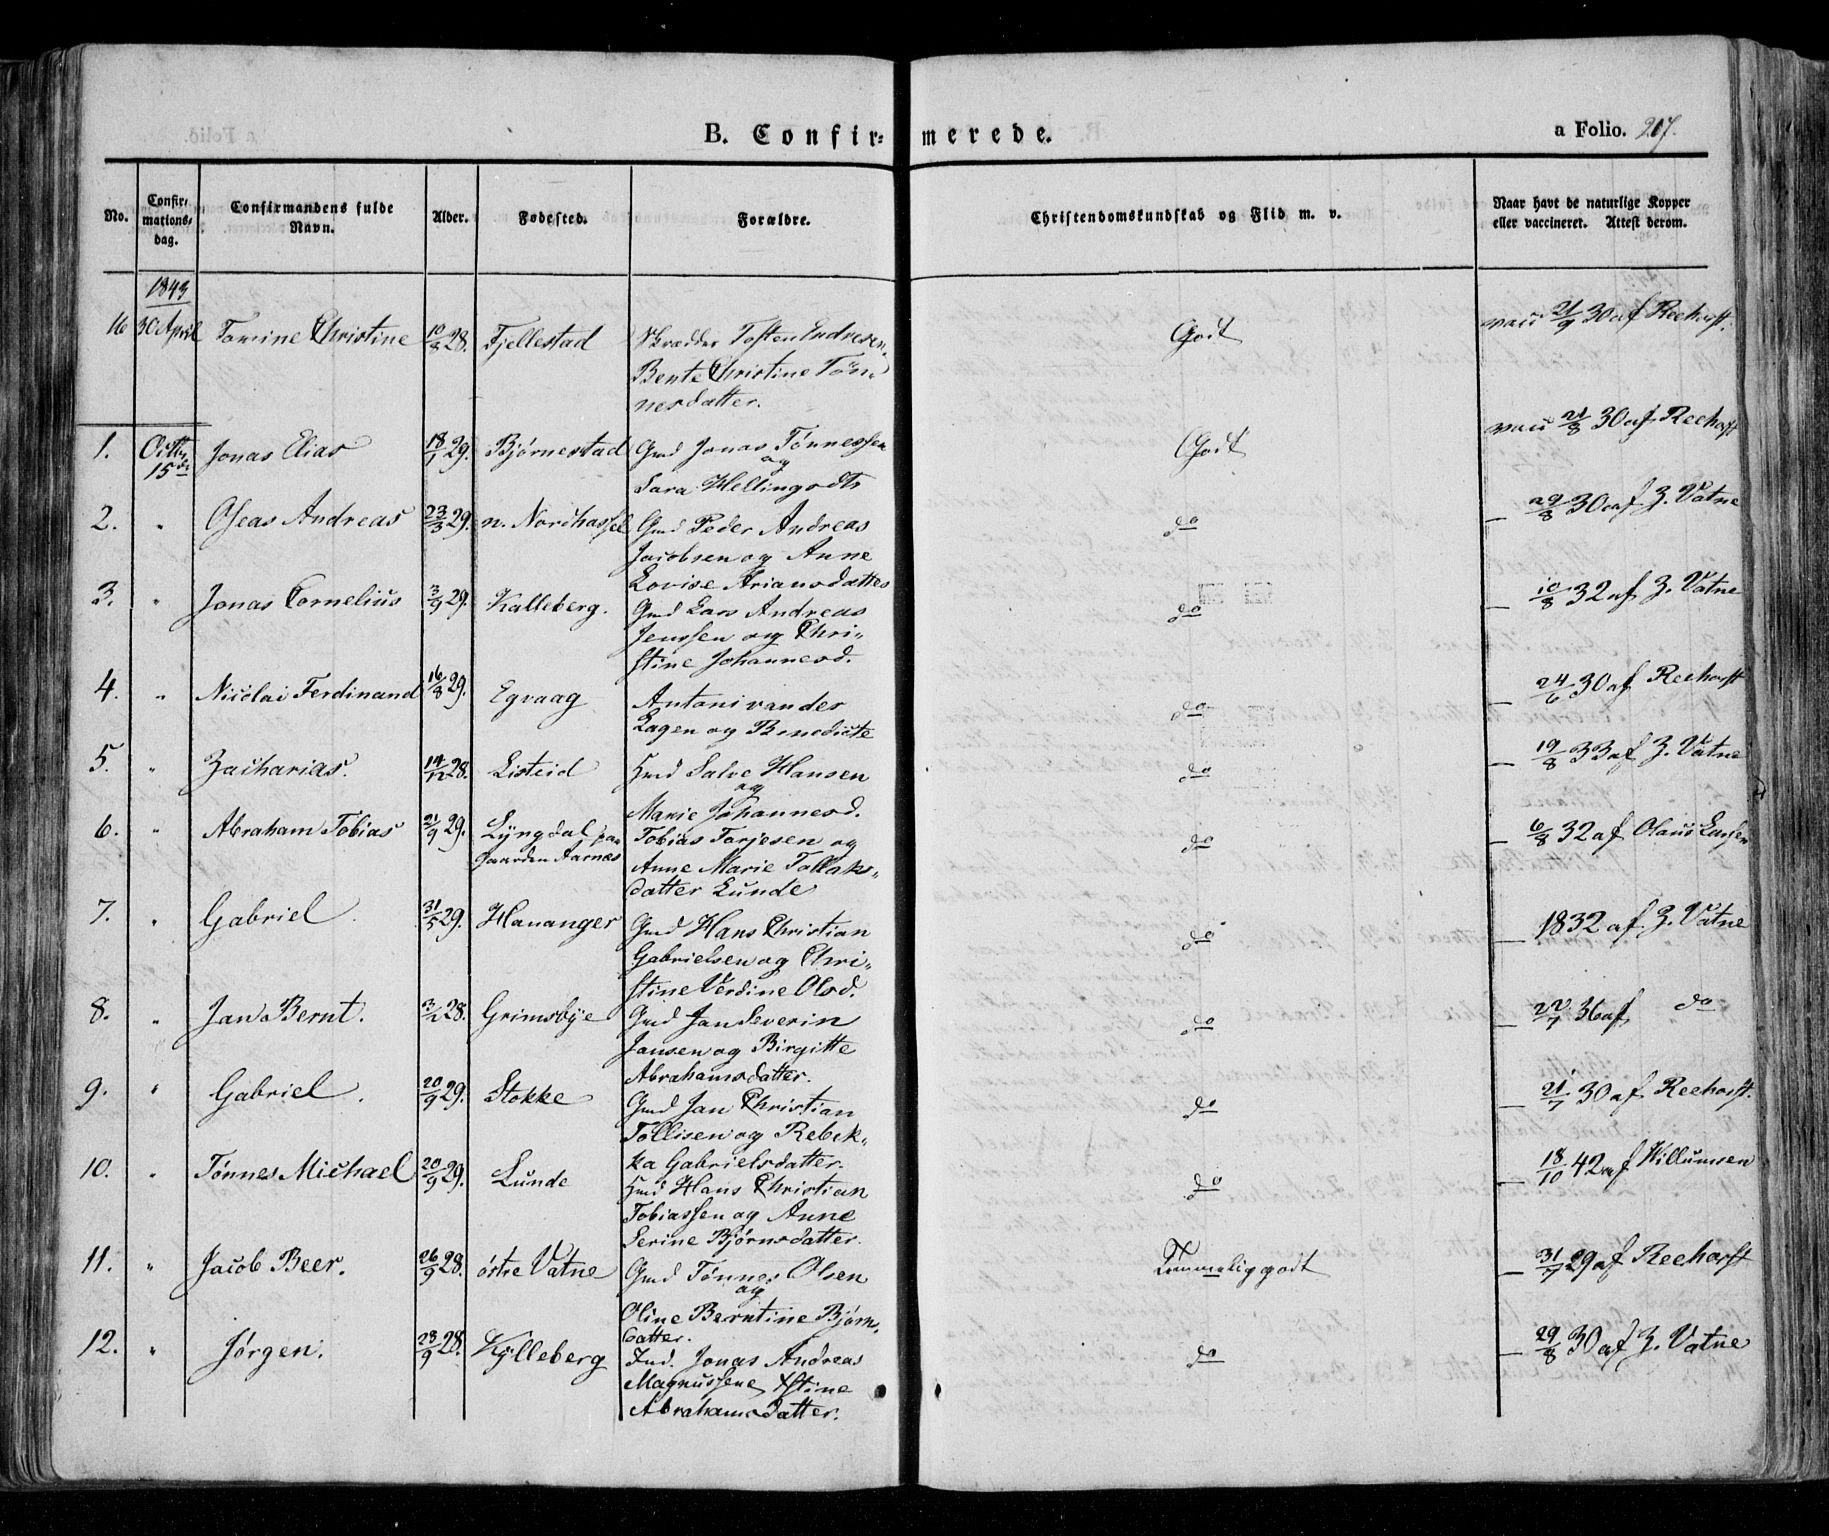 B. Confir= merede. a Folio. 207.
No. Confir= mations= dag. Confirmandens fulde Navn. Alder. Fødested. Forældre. Christendomskundskab og Flid m. v. Naar havt de naturlige Kopper eller vaccineret. Attest derom.
1843
16 30 April Tomine Christine 10/8 28. Fjellestad Skrædder Tosten Endresen Godt vacc 21/9 30 af Reehorst.
Bente Christine Tøn=
nesdatter.
1. Octbr 15de Jonas Elias 18/1 29. Bjørnestad Gmd Jonas Tønnessen Godt vacc 21/8 30 af Reehorst
og
Sara Hellingsdtr
2. " Oseas Andreas 23/3 29. n. Nordhassel Gmd Peder Andreas do — 29/8 30 af Z. Vatne
Jacobsen og Anne
Lovise Ariansdatter
3. " Jonas Cornelius 3/9 29. Kalleberg. Gmd Lars Andreas do — 10/8 32 af Z. Vatne
Jenssen og Chri=
stine Johannesd.
4. " Nicolai Ferdinand 16/8 29. Egvaag Antoni van der do — 24/6 30 af Reehorst
Lagen og Benedicte
5. " Zacharias. 14/12 28. Listeid Hmd Salve Hansen do — 19/8 33 af Z. Vatne
og
Marie Johannesd.
6. " Abraham Tobias 21/9 29. Lyngdal paa Tobias Tarjesen og do — 6/8 32 af Olaus Larsen
Gaarden Aarnæs Anne Marie Tollaks=
datter Lunde
7. " Gabriel 31/5 29. Hananger Gmd Hans Christian do — 1832 af Z. Vatne
Gabrielsen og Chri=
stine Verdine Olsd.
8. " Jan Bernt. 28. Grimsbye Gmd Jan Severin do — 22/7 36 af do
Jansen og Birgitte
Abrahamsdatter.
9. " Gabriel. 20/9 29. Stokke Gmd Jan Christian do — 21/7 30 af Reehorst.
Tollisen og Rebek=
ka Gabrielsdatter.
10. " Tønnes Michael 20/9 29. Lunde Hmd Hans Christian do — 18/10 42 af Willumsen
Tobiassen og Anne
Serine Bjørnsdatter.
11. " Jacob Beer. 26/9 28. østre Vatne Gmd Tønnes Olsen Temmelig godt — 31/7 29 af Reehorst
og
Oline Berntine Bjørn=
datter.
12. " Jørgen. 28/9 28. Kjlleberg Ind. Jonas Andreas do — 29/8 30 af Z. Vatne
Magnussen Stine
Abrahamsdatter.